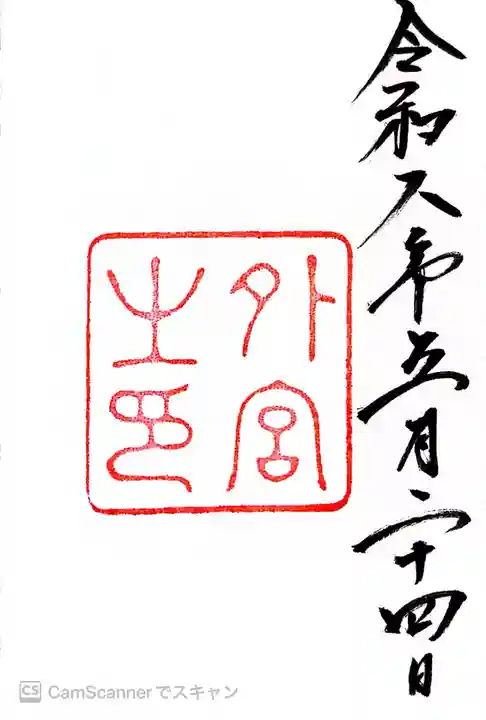 令和六年五月二十四日
外宮
之印
CS CamScannerでスキャン